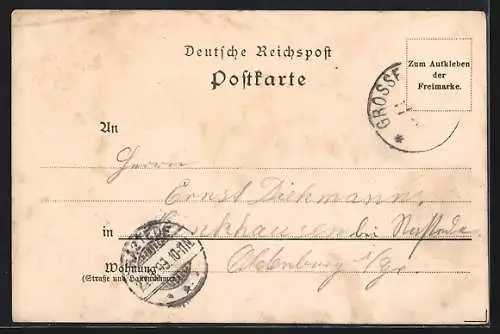 Deutsche Reichspost
Postkarte
Zum Aufkleben
der
Freimarke.
GROSSE
An
Herrn
Ernst Diekmann
in bei Rastede
Oldenburg i/Gr.
Wohnung
(Straße und Hausnummer)
RASTEDE